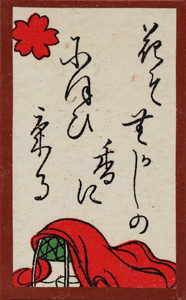 花そむかしの
香に
にほひ
ける